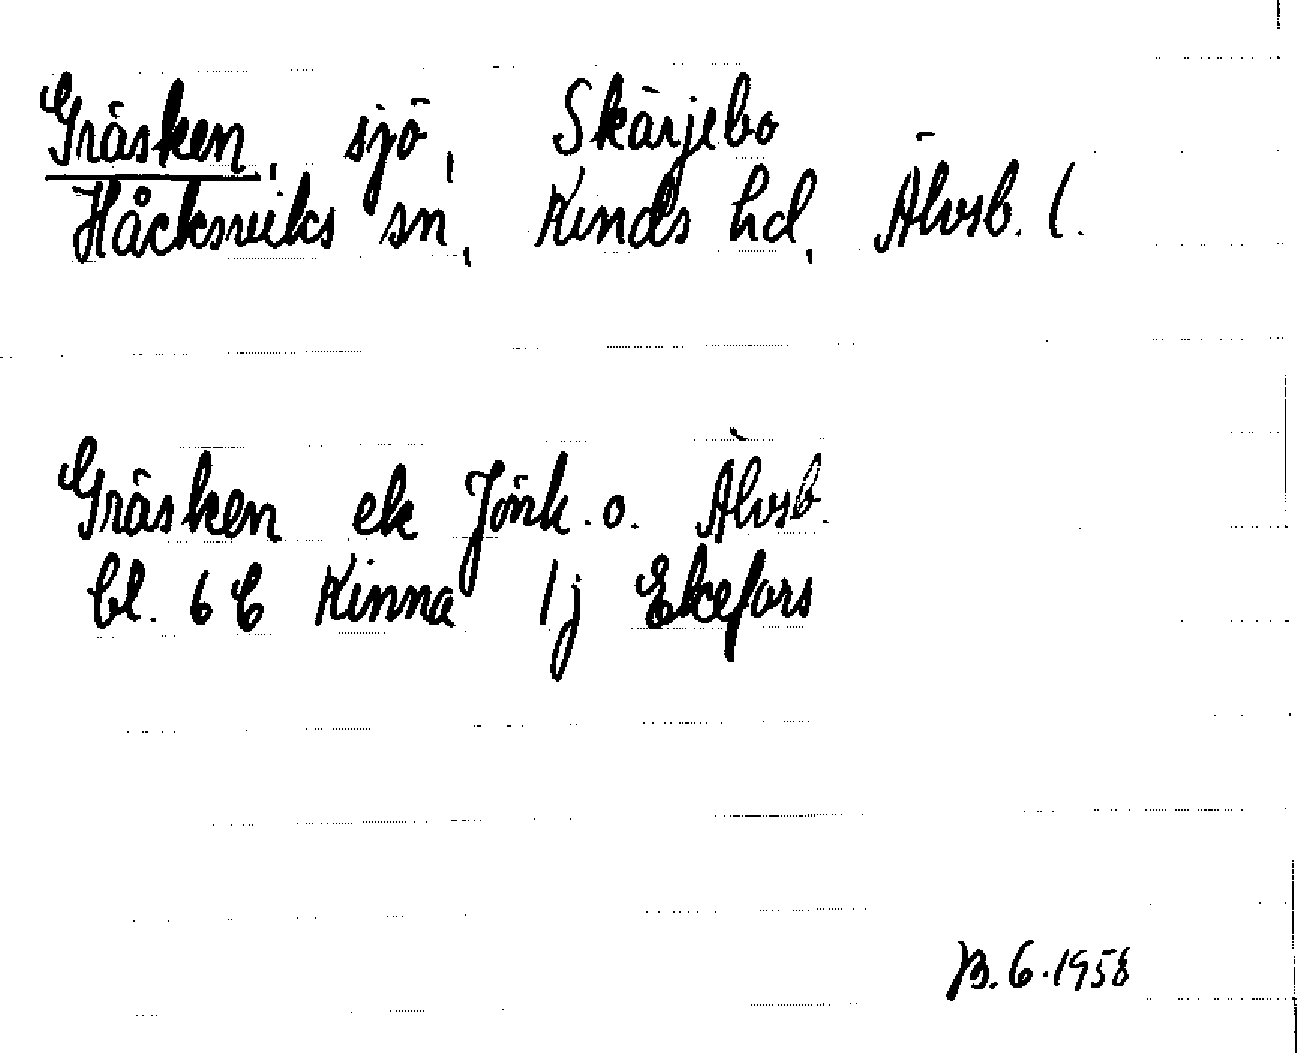 Gräsken, sjö, Skärjebo
Håcksviks sn, Kinds hd, Älvsb. l.
Gräsken ek Jönk. o. Älvsb.
bl. 6 C Kinna 1 j Ekefors
B. 6. 1958